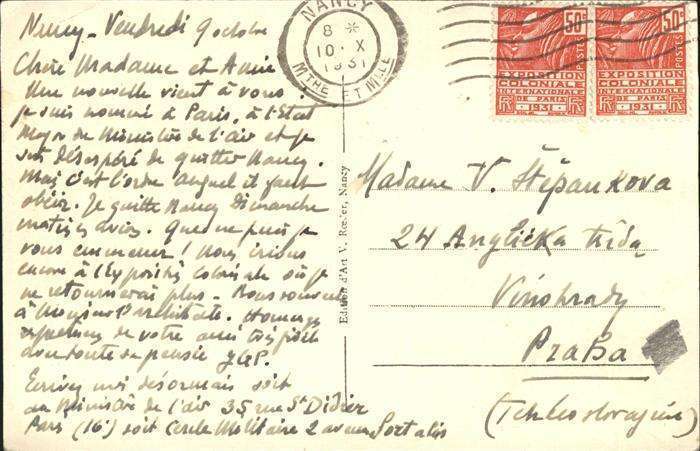 Nancy - Vendredi 9 octobre
Chère Madame et Amie
Une nouvelle vient à vous.
je suis nommé à Paris, à l'Etat
Major du Ministère de l'air et je
suis désespéré de quitter Nancy.
Mais c'est l'ordre auquel il faut
obéir. Je quitte Nancy Dimanche
matin avion. Que ne puis je
vous emmener ! Nous irions
encore à l'exposition coloniale où je
ne retournerais plus. Bons souvenirs
à Monsieur l'architecte. Hommages
respectueux de votre ami très fidèle
dont toute sa pensée JGP.
Ecrivez moi désormais soit
au Ministère de l'air 35 rue St Didier
Paris (16e) soit Cercle Militaire 2 avenue Portalis
NANCY
8 *
10 · X
1931
MTHE ET MLLE
50c
POSTES
EXPOSITION
COLONIALE
INTERNATIONALE
DE PARIS
RF 1931 RF
50c
POSTES
EXPOSITION
COLONIALE
INTERNATIONALE
DE PARIS
RF 1931 RF
Edition d'Art V. Rœder, Nancy
Madame V. Štěpankova
24 Anglička třída
Vinohrady
Praha
(Tchécoslovaquie)